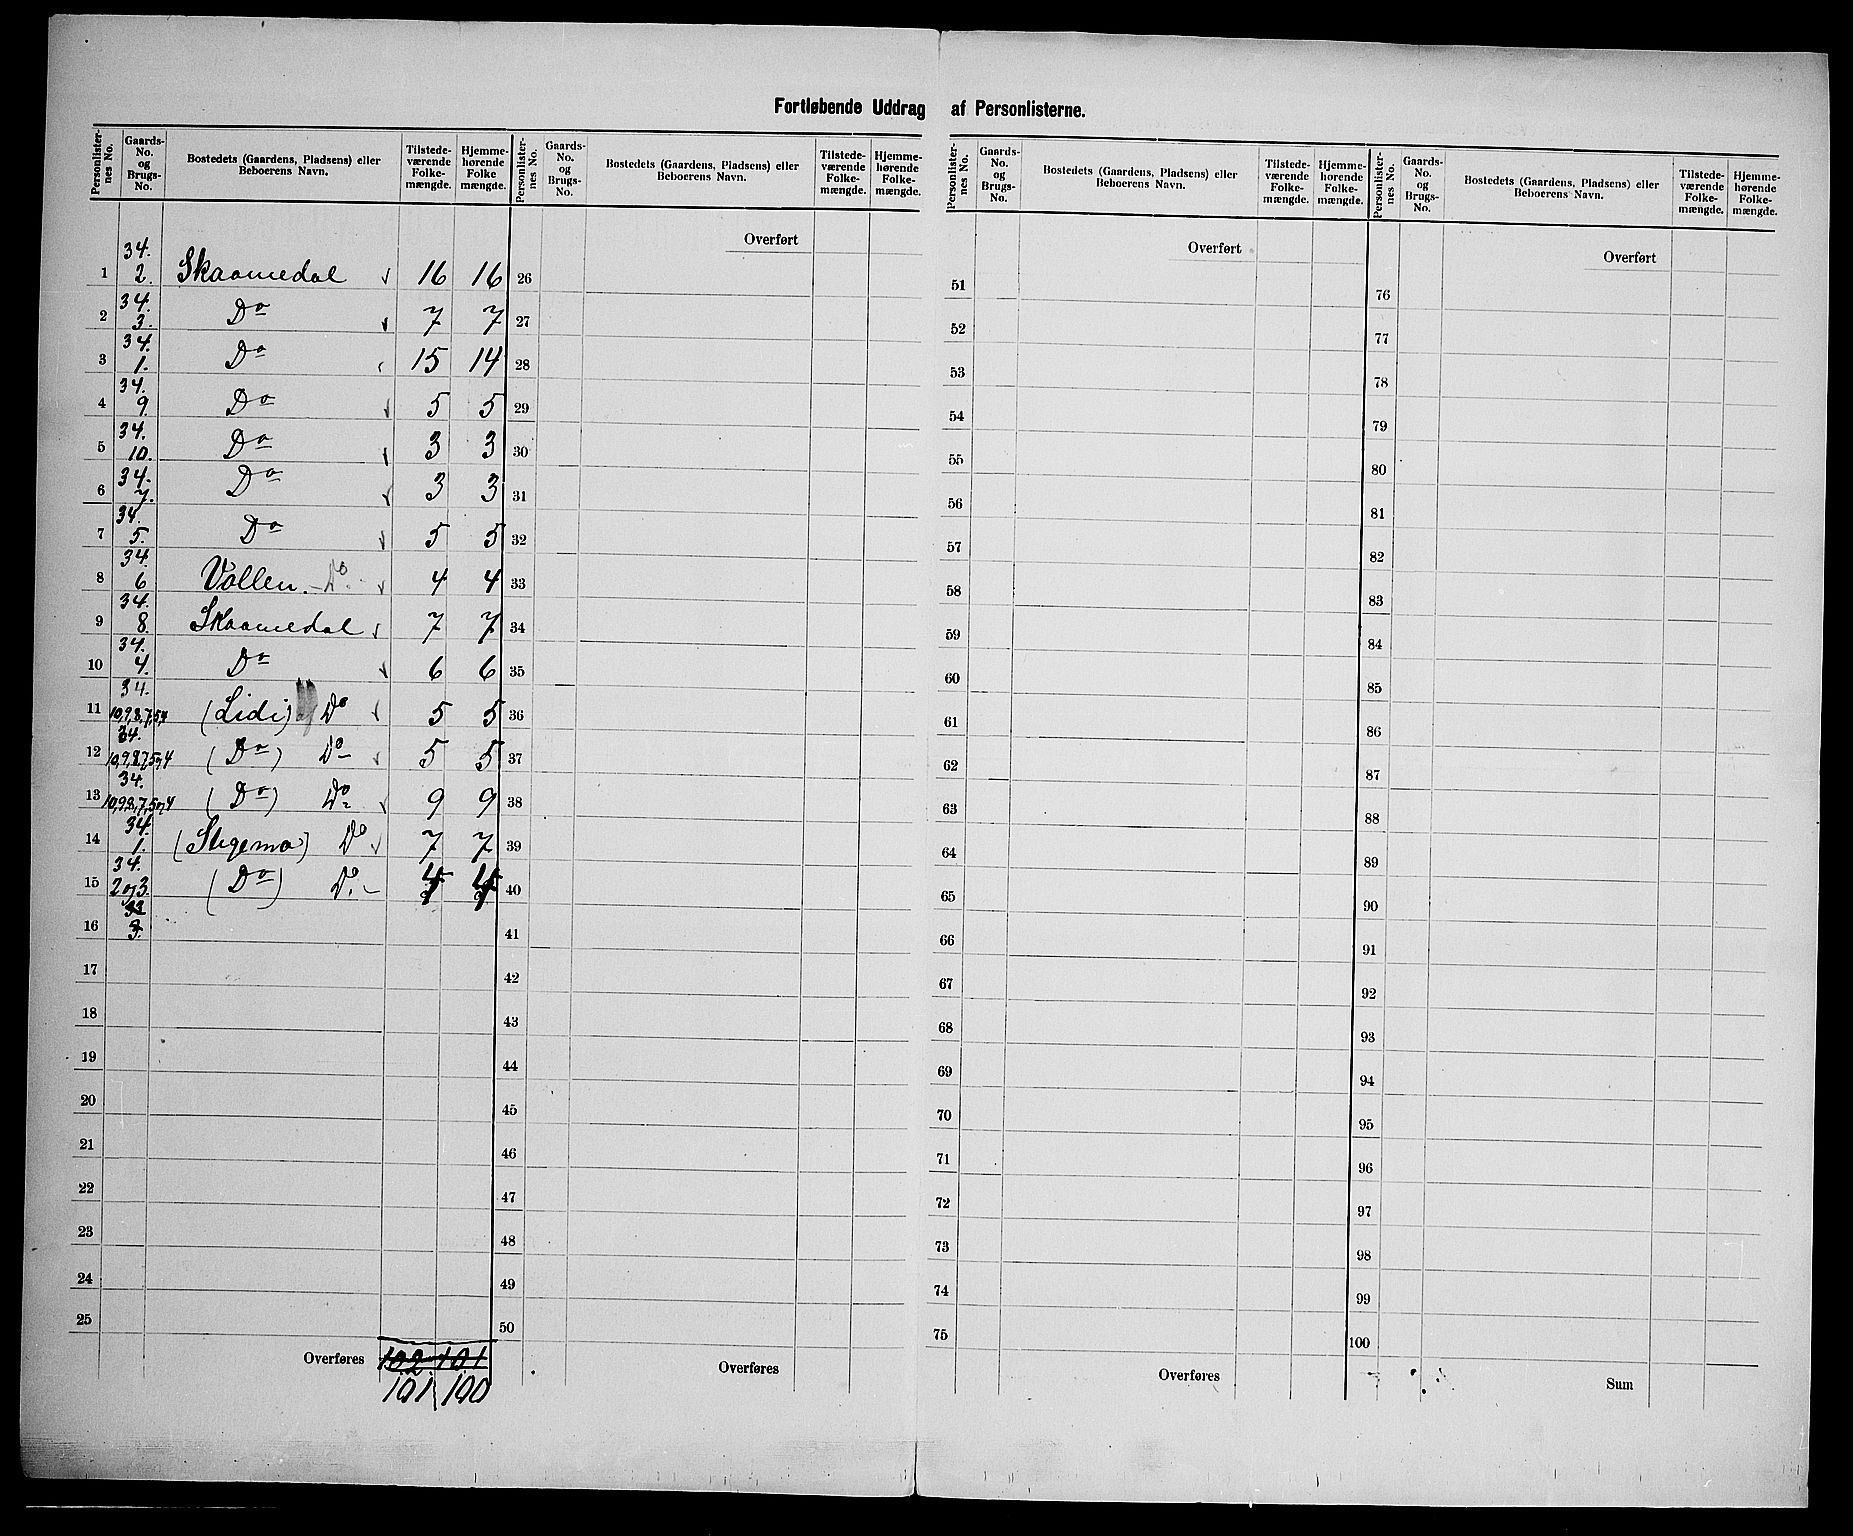 Fortløbende Uddrag af Personlisterne.
Personlister-nes No. | Gaards-No. og Brugs-No. | Bostedets (Gaardens, Pladsens) eller Beboerens Navn. | Tilstede-værende Folke-mængde. | Hjemme-hørende Folke mængde.
1 | 34. 2. | Skaamedal | 16 | 16
2 | 34. 3. | Do | 7 | 7
3 | 34. 1. | Do | 15 | 14
4 | 34. 9. | Do | 5 | 5
5 | 34. 10. | Do | 3 | 3
6 | 34. 7. | Do | 3 | 3
7 | 34. 5. | Do | 5 | 5
8 | 34. 6 | Vollen. - Do. | 4 | 4
9 | 34. 8. | Skaamedal | 7 | 7
10 | 34. 4. | Do | 6 | 6
11 | 34. 10,9,8,7,5,4 | (Lidi) af Do | 5 | 5
12 | 34. 10,9,8,7,5,4 | (Do) Do | 5 | 5
13 | 34. 10,9,8,7,5,4 | (Do) Do | 9 | 9
14 | 34. 1. | (Stigemo) Do | 7 | 7
15 | 34. 2 og 3. | (Do) Do. | 4 | 4
16 | 3.
17
18
19
20
21
22
23
24
25
Overføres 102 101
101 100
Personlister-nes No. | Gaards-No. og Brugs-No. | Bostedets (Gaardens, Pladsens) eller Beboerens Navn. | Tilstede-værende Folke-mængde. | Hjemme-hørende Folke-mængde.
Overført
26
27
28
29
30
31
32
33
34
35
36
37
38
39
40
41
42
43
44
45
46
47
48
49
50
Overføres
Personlister-nes No. | Gaards-No. og Brugs-No. | Bostedets (Gaardens, Pladsens) eller Beboerens Navn. | Tilstede-værende Folke-mængde. | Hjemme-hørende Folke-mængde.
Overført
51
52
53
54
55
56
57
58
59
60
61
62
63
64
65
66
67
68
69
70
71
72
73
74
75
Overføres
Personlister-nes No. | Gaards-No. og Brugs-No. | Bostedets (Gaardens, Pladsens) eller Beboerens Navn. | Tilstede-værende Folke-mængde. | Hjemme-hørende Folke-mængde.
Overført
76
77
78
79
80
81
82
83
84
85
86
87
88
89
90
91
92
93
94
95
96
97
98
99
100
Sum